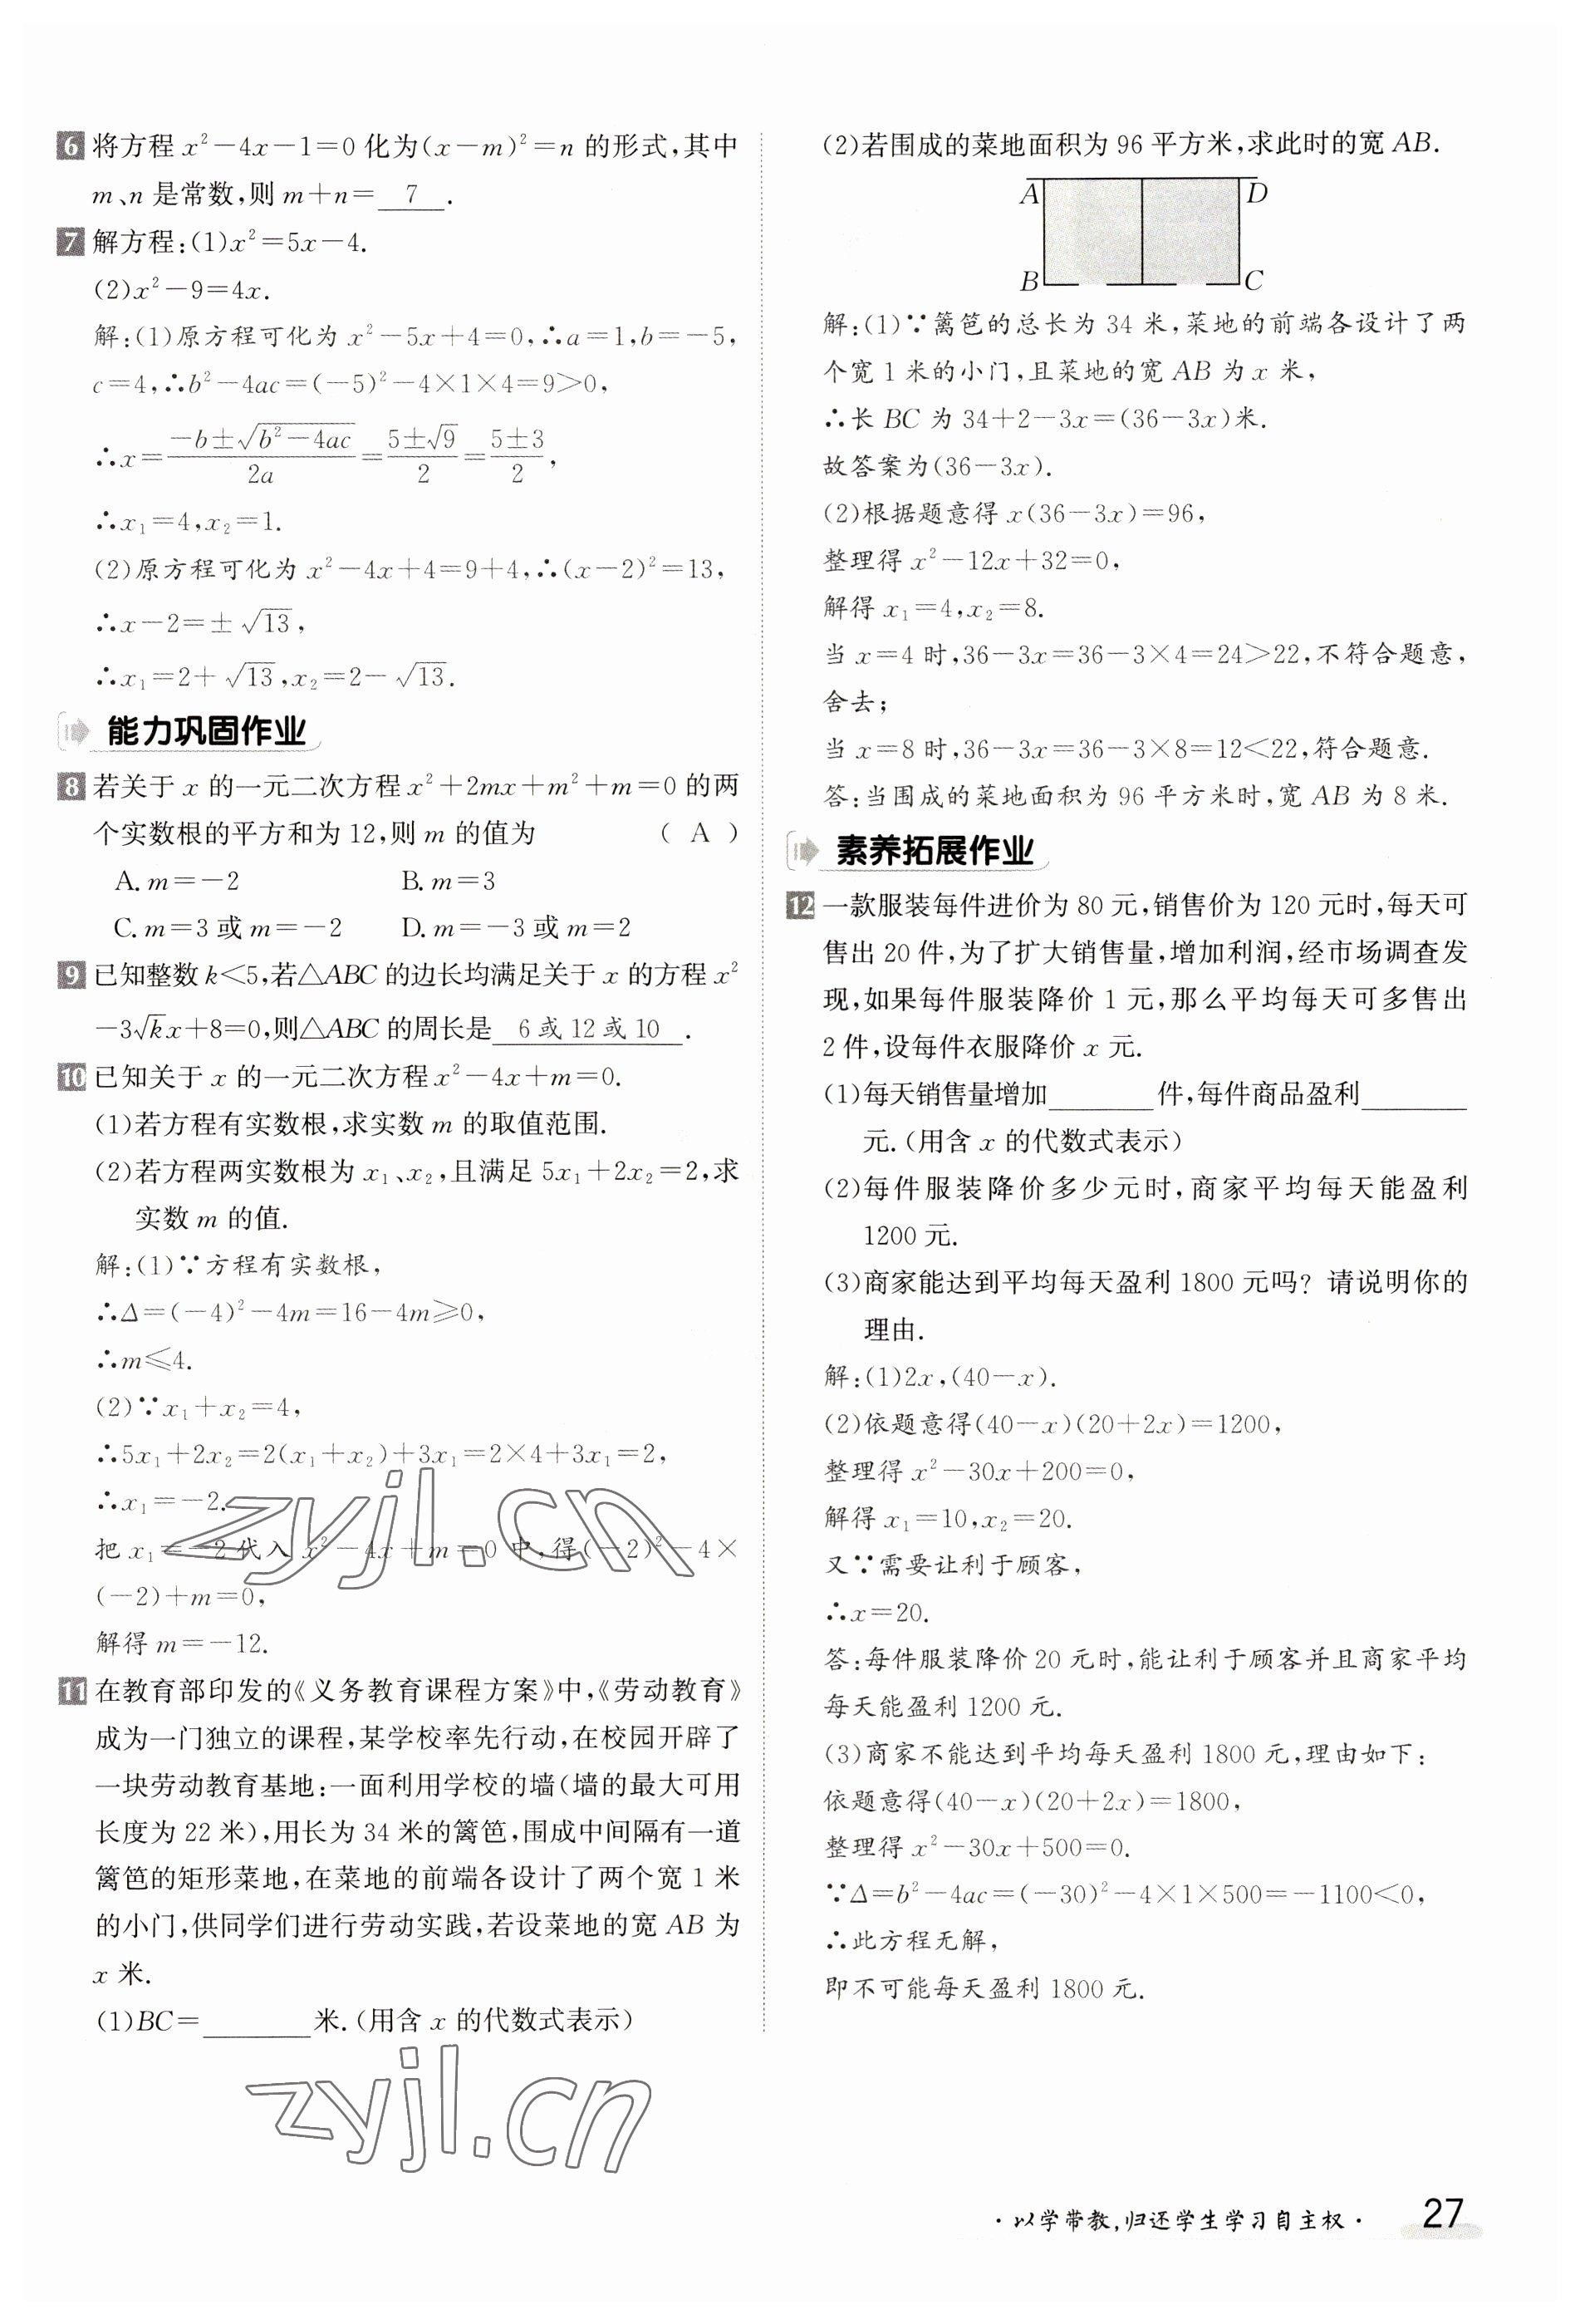 6 将方程 x²-4x-1=0 化为(x-m)²=n 的形式,其中
m、n 是常数,则 m+n= 7 .
7 解方程:(1)x²=5x-4.
(2)x²-9=4x.
解:(1)原方程可化为 x²-5x+4=0,∴a=1,b=-5,
c=4,∴b²-4ac=(-5)²-4×1×4=9>0,
∴x=(-b±√(b²-4ac))/(2a)=(5±√9)/2=(5±3)/2,
∴x₁=4,x₂=1.
(2)原方程可化为 x²-4x+4=9+4,∴(x-2)²=13,
∴x-2=±√13,
∴x₁=2+√13,x₂=2-√13.
能力巩固作业
8 若关于 x 的一元二次方程 x²+2mx+m²+m=0 的两
个实数根的平方和为 12,则 m 的值为 ( A )
A. m=-2 B. m=3
C. m=3 或 m=-2 D. m=-3 或 m=2
9 已知整数 k<5,若△ABC 的边长均满足关于 x 的方程 x²
-3√k x+8=0,则△ABC 的周长是 6 或 12 或 10 .
10 已知关于 x 的一元二次方程 x²-4x+m=0.
(1)若方程有实数根,求实数 m 的取值范围.
(2)若方程两实数根为 x₁、x₂,且满足 5x₁+2x₂=2,求
实数 m 的值.
解:(1)∵方程有实数根,
∴Δ=(-4)²-4m=16-4m≥0,
∴m≤4.
(2)∵x₁+x₂=4,
∴5x₁+2x₂=2(x₁+x₂)+3x₁=2×4+3x₁=2,
∴x₁=-2.
把 x₁=-2 代入 x²-4x+m=0 中,得(-2)²-4×
(-2)+m=0,
解得 m=-12.
11 在教育部印发的《义务教育课程方案》中,《劳动教育》
成为一门独立的课程,某学校率先行动,在校园开辟了
一块劳动教育基地:一面利用学校的墙(墙的最大可用
长度为 22 米),用长为 34 米的篱笆,围成中间隔有一道
篱笆的矩形菜地,在菜地的前端各设计了两个宽 1 米
的小门,供同学们进行劳动实践,若设菜地的宽 AB 为
x 米.
(1)BC=________米.(用含 x 的代数式表示)
zyjl.cn
zyjl.cn
(2)若围成的菜地面积为 96 平方米,求此时的宽 AB.
A D
B C
解:(1)∵篱笆的总长为 34 米,菜地的前端各设计了两
个宽 1 米的小门,且菜地的宽 AB 为 x 米,
∴长 BC 为 34+2-3x=(36-3x)米.
故答案为(36-3x).
(2)根据题意得 x(36-3x)=96,
整理得 x²-12x+32=0,
解得 x₁=4,x₂=8.
当 x=4 时,36-3x=36-3×4=24>22,不符合题意,
舍去;
当 x=8 时,36-3x=36-3×8=12<22,符合题意.
答:当围成的菜地面积为 96 平方米时,宽 AB 为 8 米.
素养拓展作业
12 一款服装每件进价为 80 元,销售价为 120 元时,每天可
售出 20 件,为了扩大销售量,增加利润,经市场调查发
现,如果每件服装降价 1 元,那么平均每天可多售出
2 件,设每件衣服降价 x 元.
(1)每天销售量增加________件,每件商品盈利________
元.(用含 x 的代数式表示)
(2)每件服装降价多少元时,商家平均每天能盈利
1200 元.
(3)商家能达到平均每天盈利 1800 元吗? 请说明你的
理由.
解:(1)2x,(40-x).
(2)依题意得(40-x)(20+2x)=1200,
整理得 x²-30x+200=0,
解得 x₁=10,x₂=20.
又∵需要让利于顾客,
∴x=20.
答:每件服装降价 20 元时,能让利于顾客并且商家平均
每天能盈利 1200 元.
(3)商家不能达到平均每天盈利 1800 元,理由如下:
依题意得(40-x)(20+2x)=1800,
整理得 x²-30x+500=0.
∵Δ=b²-4ac=(-30)²-4×1×500=-1100<0,
∴此方程无解,
即不可能每天盈利 1800 元.
·以学带教,归还学生学习自主权· 27